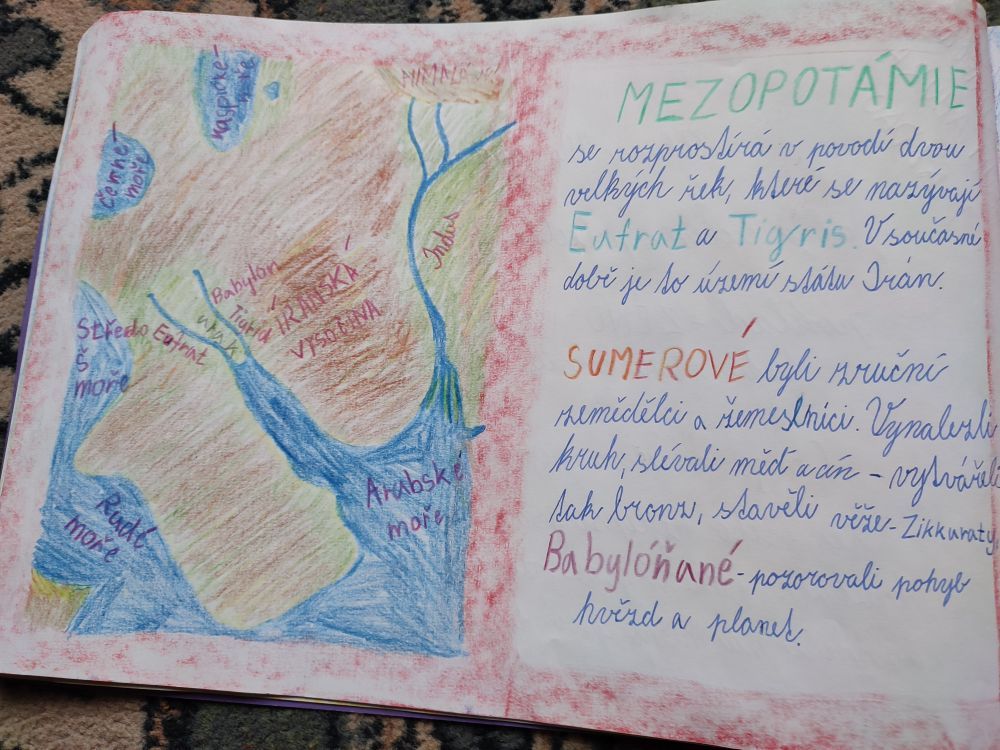 Kaspické
moře
Černé
moře
HIMALÁJ
Indus
Babylon
Tigris
URUK
Eufrat
ÍRÁNSKÁ
VYSOČINA
Středo
moře
Rudé
moře
Arabské
moře
MEZOPOTÁMIE
se rozprostírá v povodí dvou
velkých řek, které se nazývají
Eufrat a Tigris. V současné
době je to území státu Irán.
SUMEROVÉ byli zruční
zemědělci a řemeslníci. Vynalezli
kruh, slévali měď a cín – vytvářeli
tak bronz, stavěli věže – Zikkuraty.
Babylóňané - pozorovali pohyb
hvězd a planet.